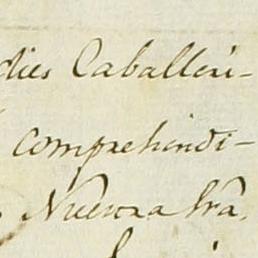 dies Caballeri-
comprehendi-
Nuestra Sra.